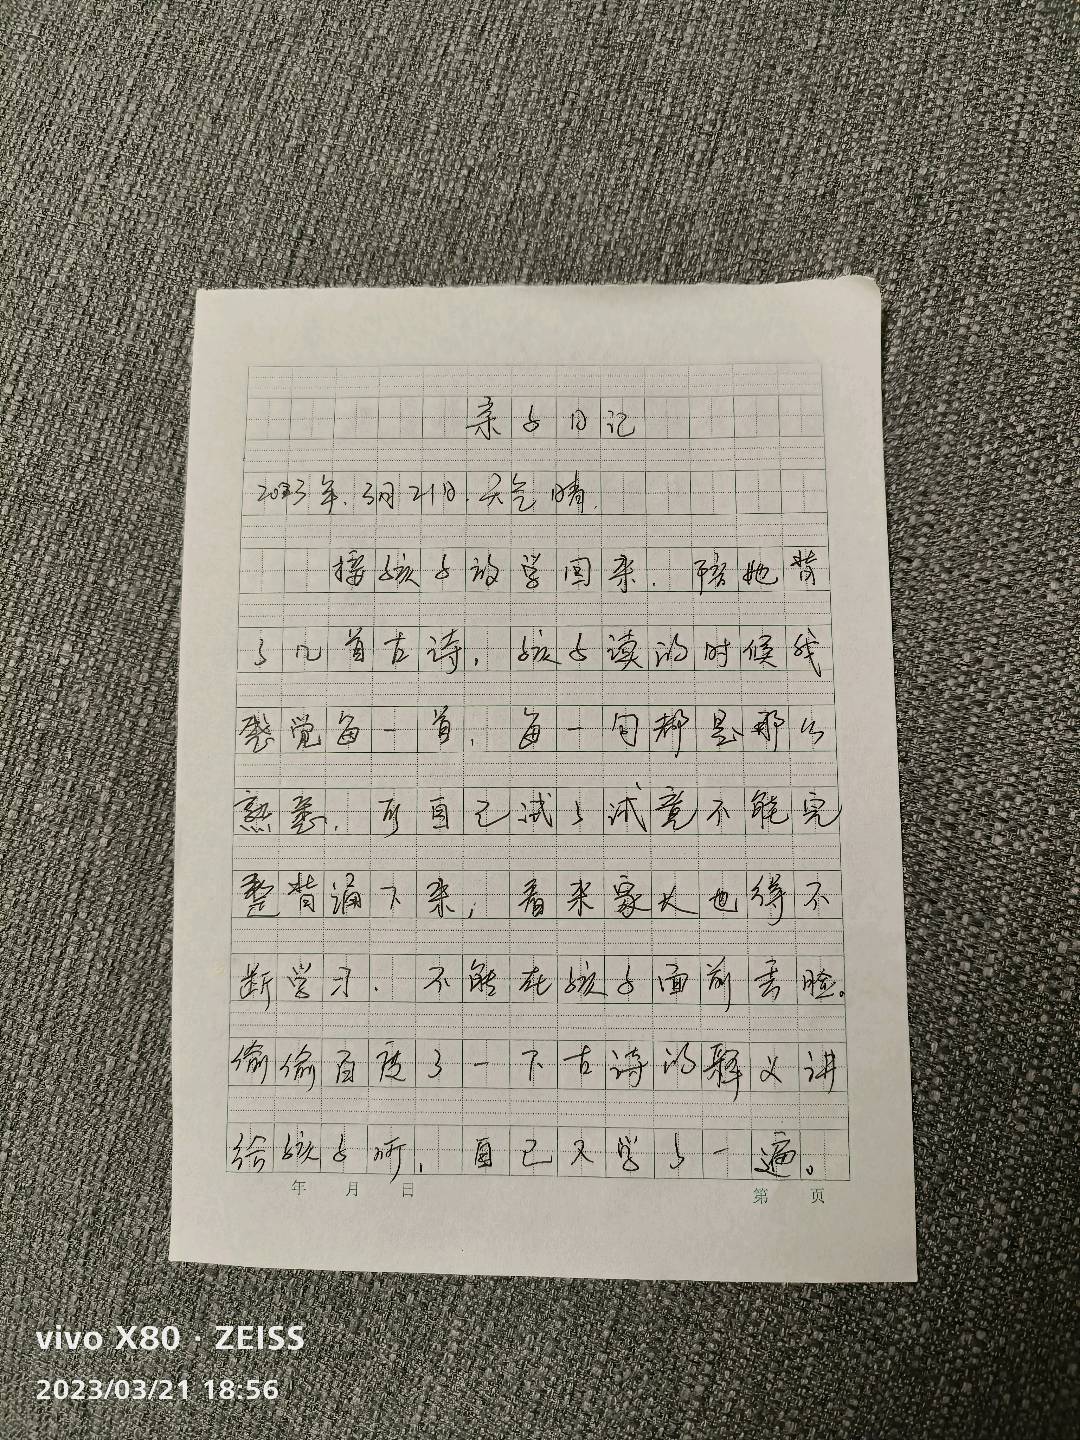 亲子日记
2023年.3月21日.天气晴.
接孩子放学回来.陪她背
了几首古诗,孩子读的时候我
感觉每一首,每一句都是那么
熟悉,可自己试了试竟不能完
整背诵下来,看来家长也得不
断学习.不能在孩子面前丢脸。
偷偷百度了一下古诗的释义讲
给孩子听,自己又学了一遍。
年 月 日 第 页
vivo X80 · ZEISS
2023/03/21 18:56